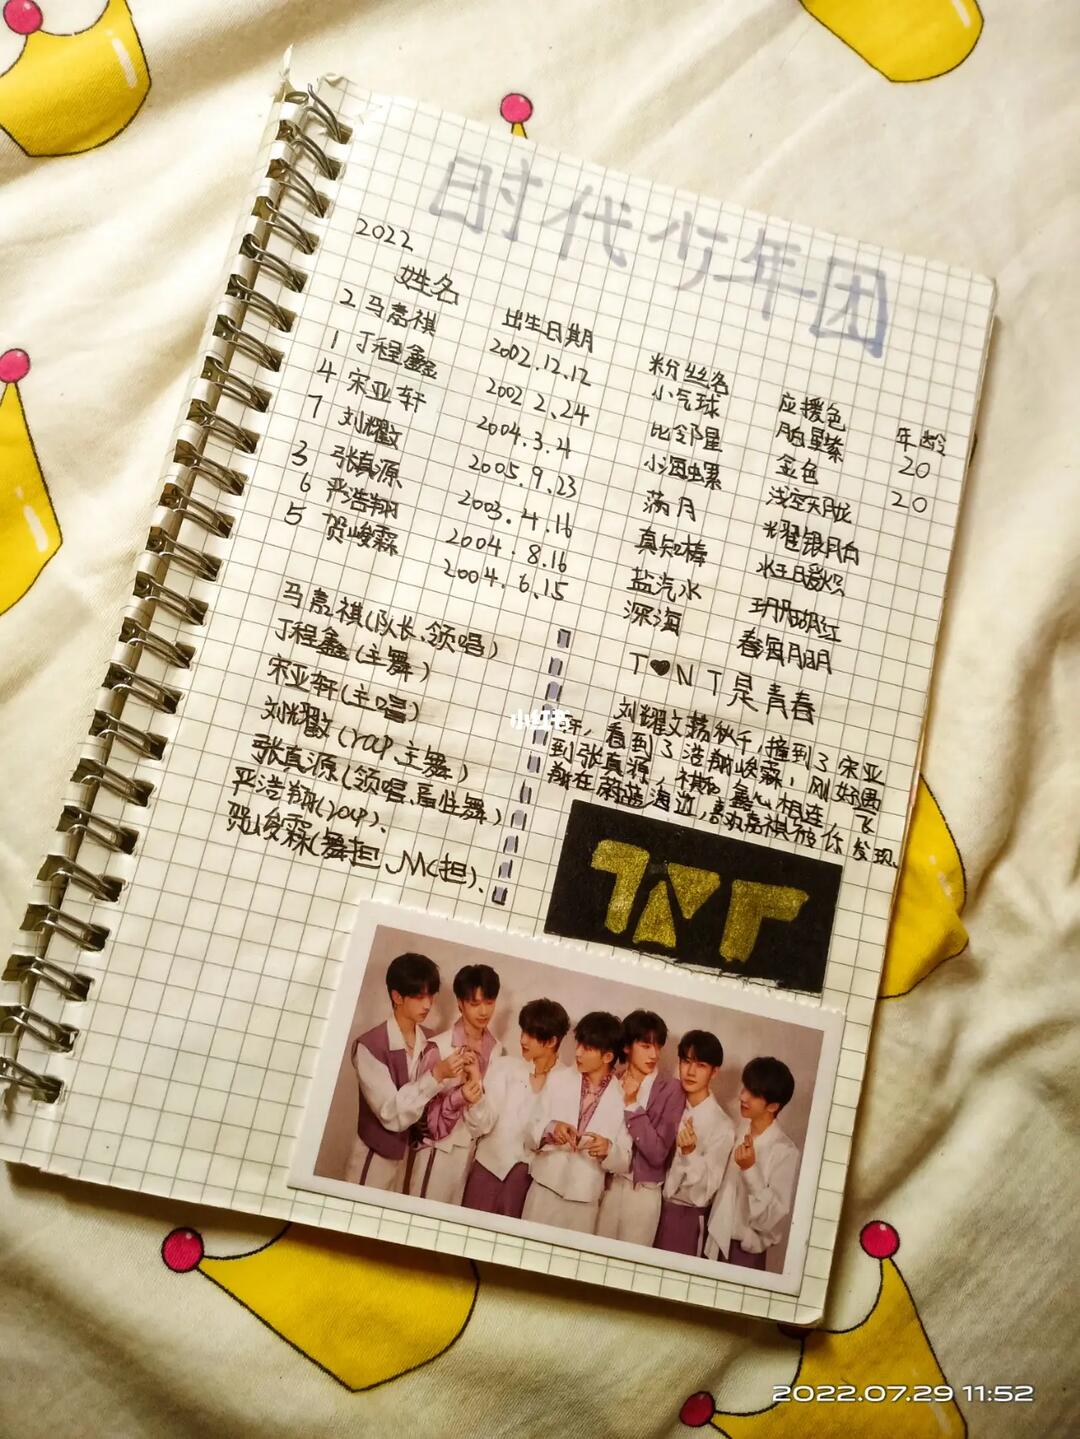 时代少年团
2022
姓名 出生日期 粉丝名 应援色 年龄
2 马嘉祺 2002.12.12 小气球 月白星紫 20
1 丁程鑫 2002 2.24 比邻星 金色 20
4 宋亚轩 2004.3.4 小海螺 浅空天胧
7 刘耀文 2005.9.23 满月 耀银月白
3 张真源 2003.4.16 真知棒
6 严浩翔 2004.8.16 盐汽水 珊瑚红
5 贺峻霖 2004.6.15 深海 春夏月明
马嘉祺(队长、领唱)
丁程鑫(主舞)
宋亚轩(主唱)
刘耀文(rap、主舞)
张真源(领唱、副主舞)
严浩翔(rap)、
贺峻霖(舞担 JM(担)、
T♥NT是青春
刘耀文荡秋千,撞到了宋亚
轩,看到了浩翔峻霖,刚好遇
到张真源,祺 鑫心相连 飞
翔在蔚蓝海边,喜欢嘉祺被你发现、
TNT
小红书
2022.07.29 11:52